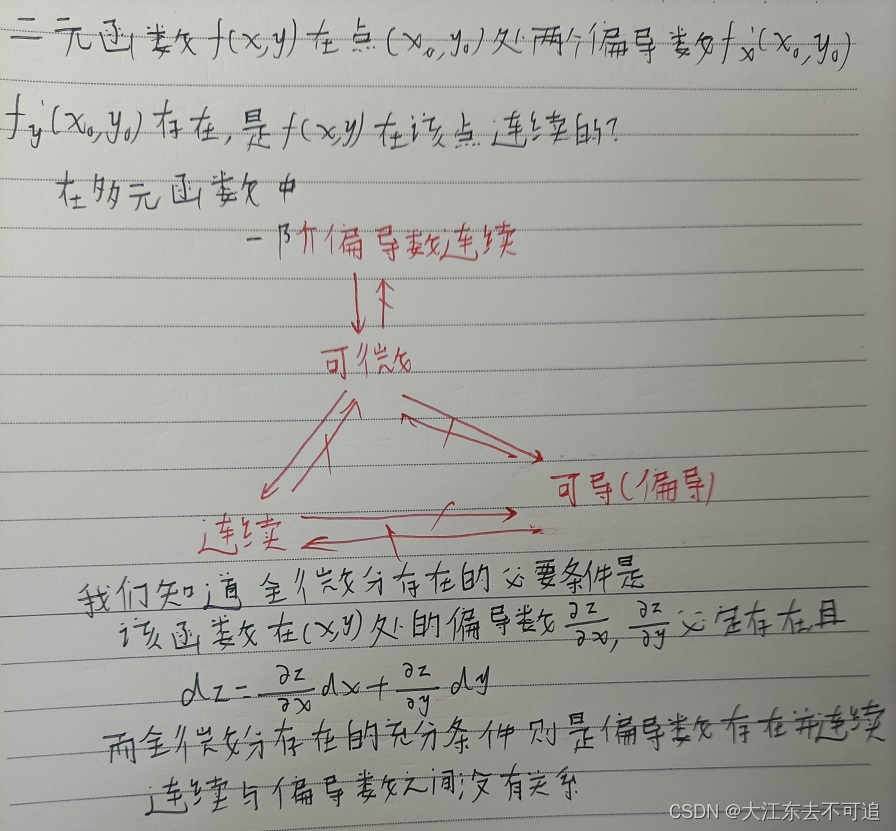 二元函数f(x,y)在点(x₀,y₀)处两个偏导数fx'(x₀,y₀)
fy'(x₀,y₀)存在,是f(x,y)在该点连续的?
在多元函数中
一阶偏导数连续
可微
可导(偏导)
连续
我们知道全微分存在的必要条件是
该函数在(x,y)处的偏导数∂z/∂x,∂z/∂y必定存在且
dz=∂z/∂x dx+∂z/∂y dy
而全微分存在的充分条件则是偏导数存在并连续
连续与偏导数之间没有关系
CSDN @大江东去不可追